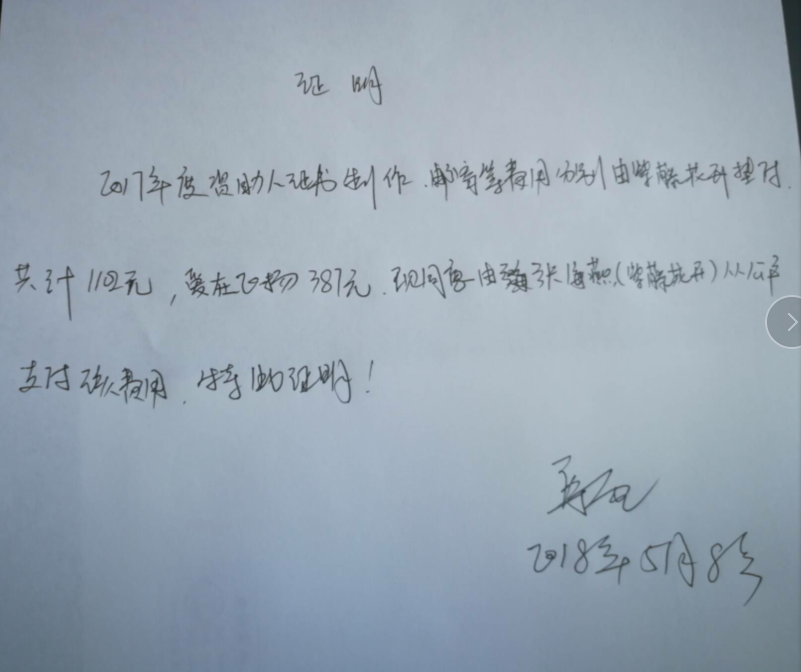 证明
2017年度资助人证书制作、邮寄等费用分别由紫藤花开垫付.
共计1102元，爱在飞扬387元.现同意由张海燕(紫藤花开)从公户
支付该费用.特此证明！
2018年5月8号